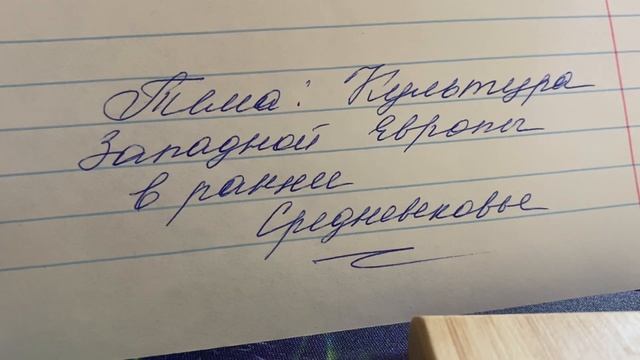 Тема: Культура
Западной Европы
в ранни
Средневековье